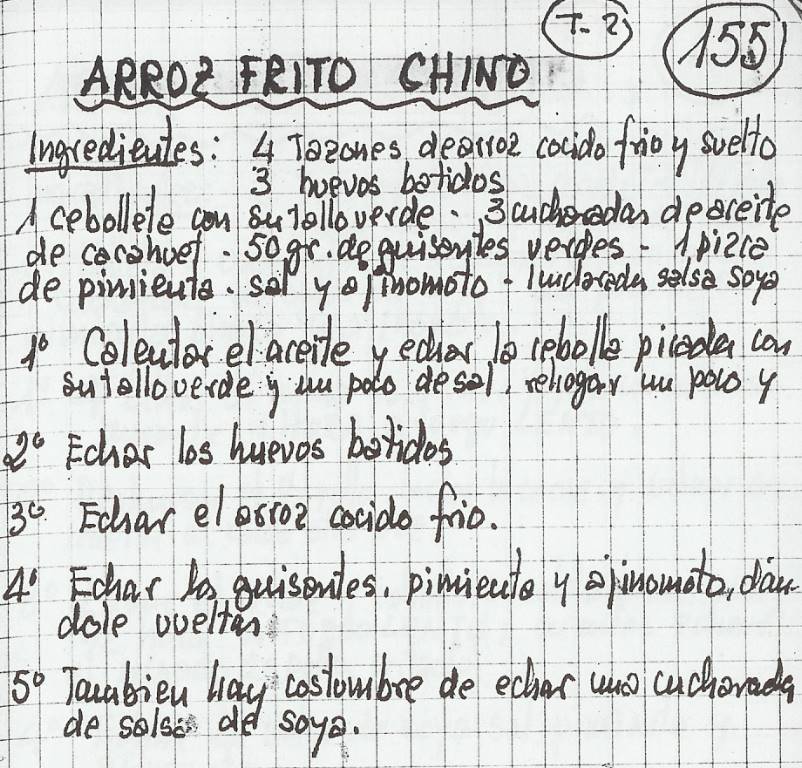 T-2
155
ARROZ FRITO CHINO
Ingredientes: 4 Tazones de arroz cocido frio y suelto
3 huevos batidos
1 cebollete con su tallo verde. 3 cucharadas de aceite
de cacahuet. 50 gr. de guisantes verdes - 1 pizca
de pimienta. sal y ajinomoto - 1 cucharada salsa soya
1º Calentar el aceite y echar la cebolla picada con
su tallo verde y un poco de sal, rehogar un poco y
2º Echar los huevos batidos
3º Echar el arroz cocido frio.
4º Echar los guisantes, pimienta y ajinomoto, dán-
dole vueltas
5º Tambien hay costumbre de echar una cucharada
de salsa de soya.